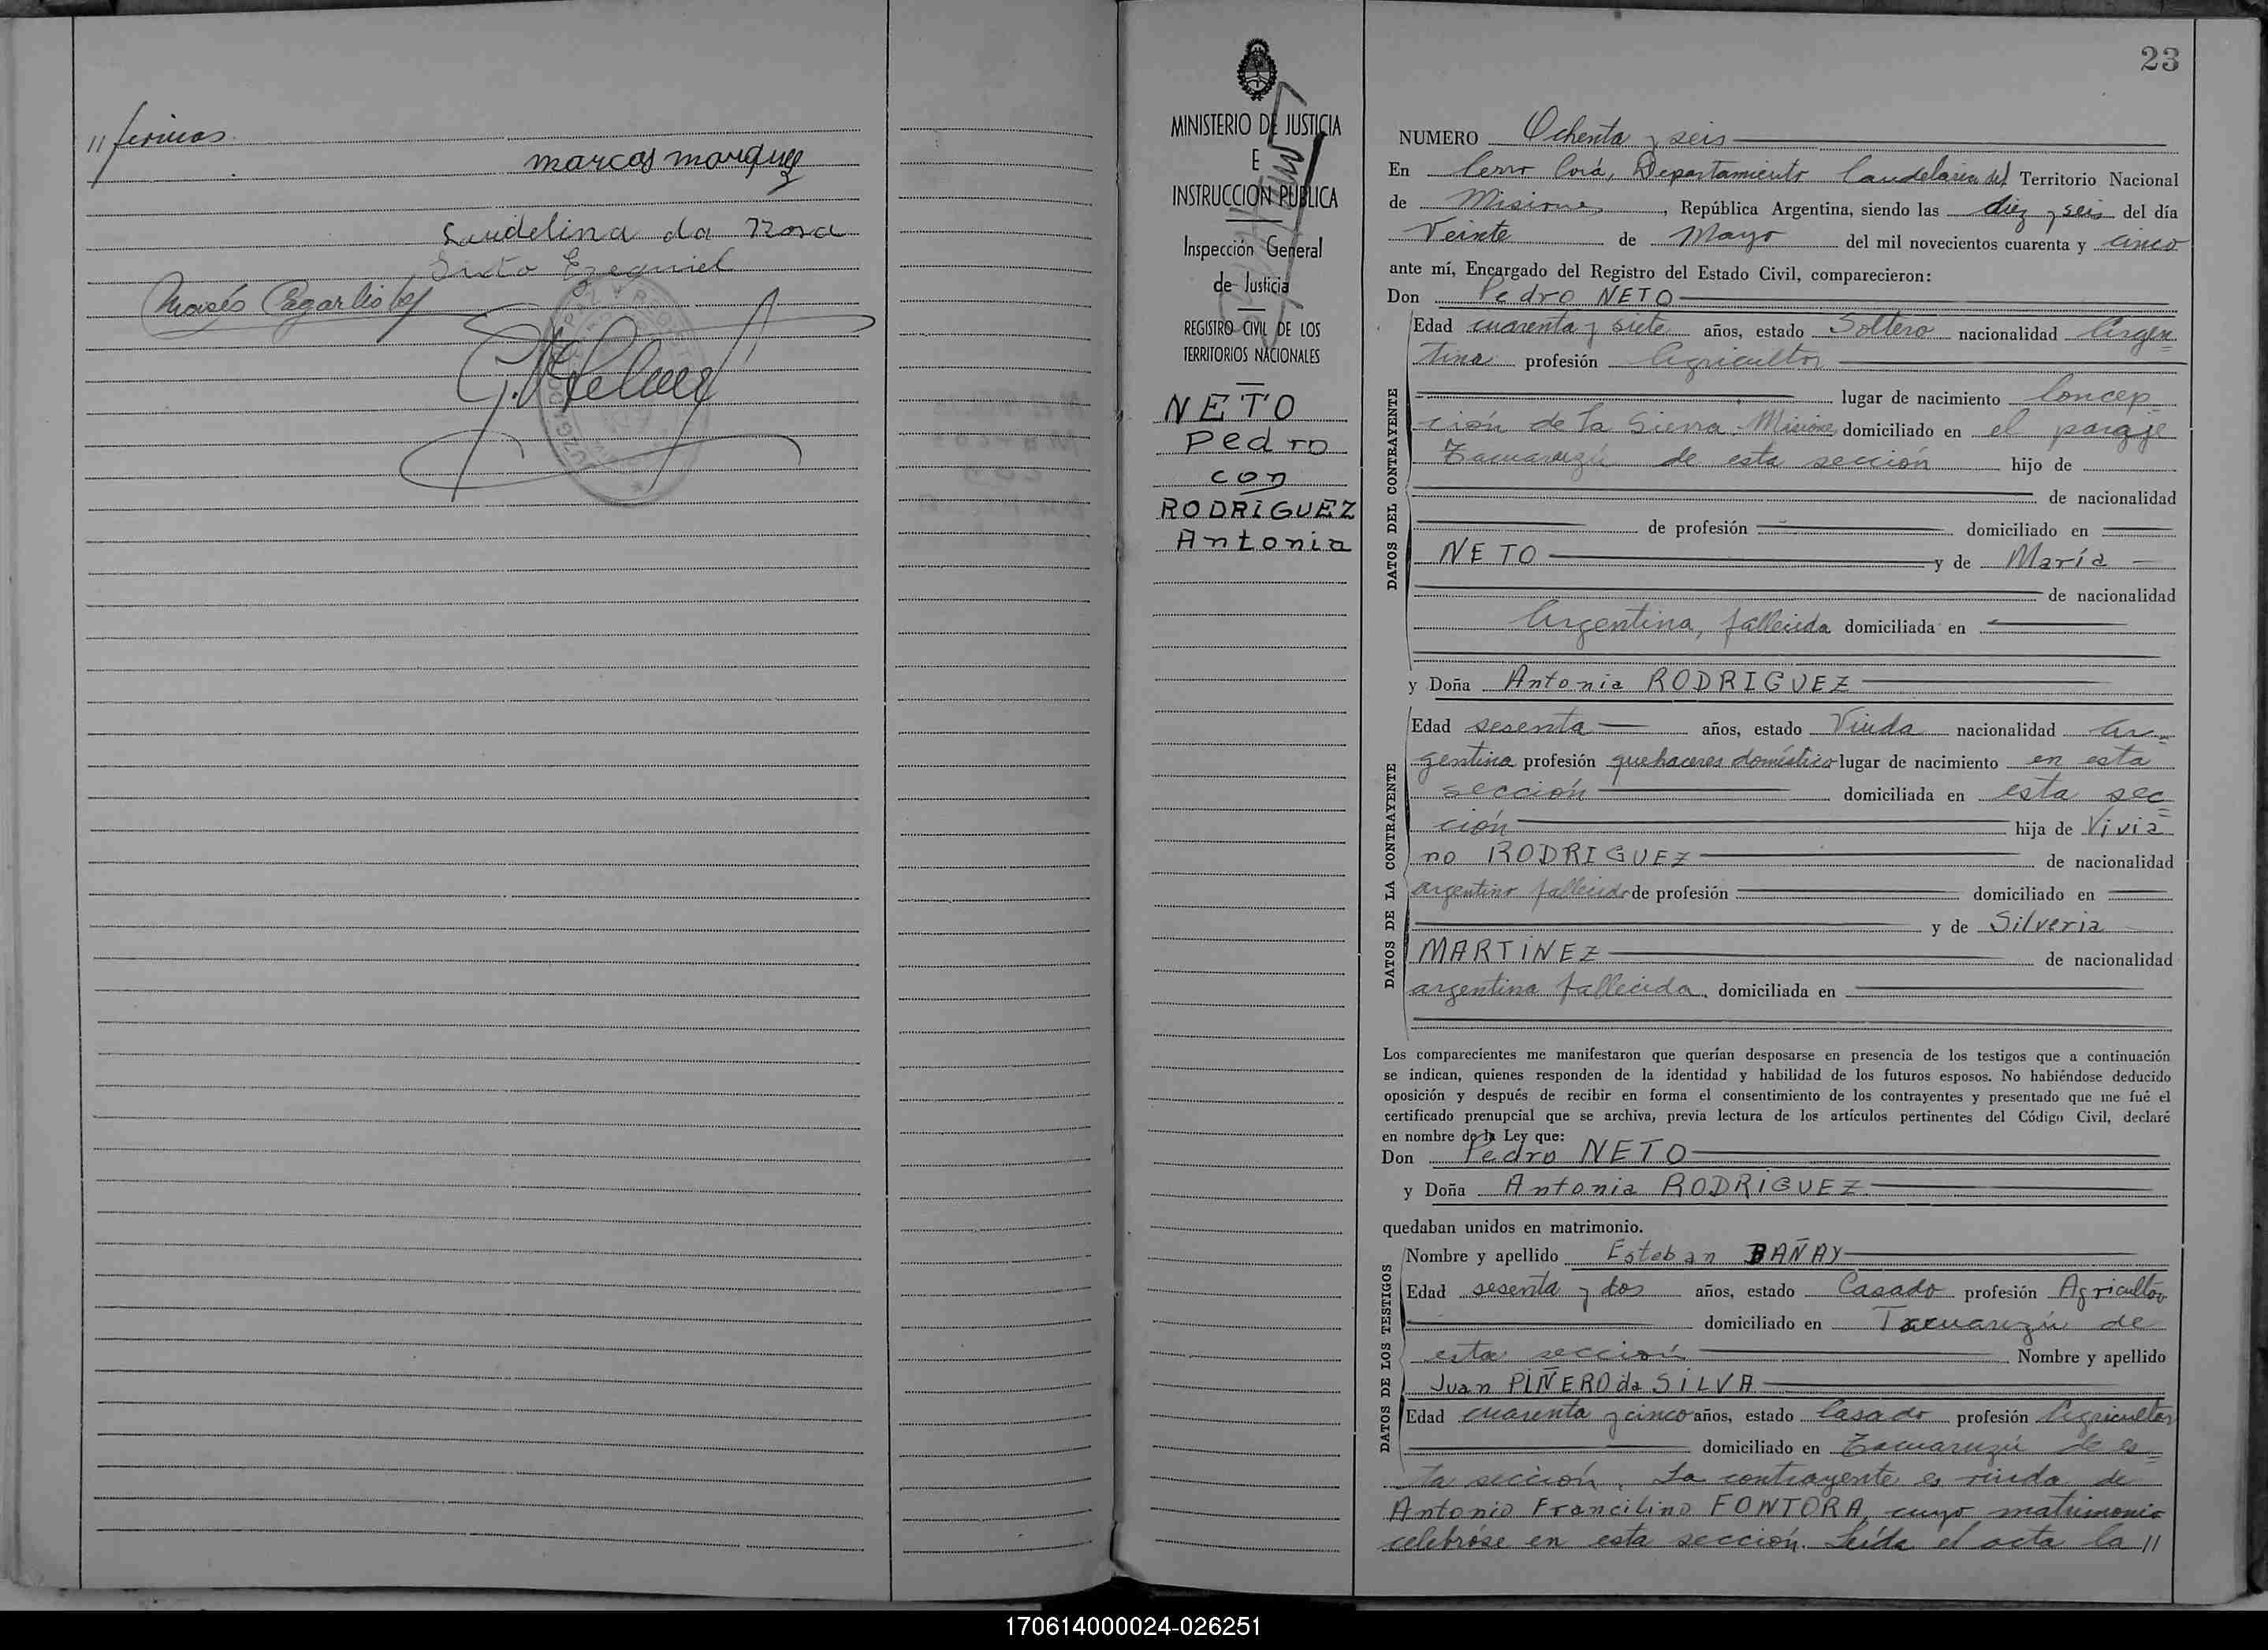 // firmas
marcos marquez
Laudelina da Rosa
Sixto Ezequiel
Moisés
MINISTERIO DE JUSTICIA
E
INSTRUCCION PUBLICA
Inspección General
de Justicia
REGISTRO CIVIL DE LOS
TERRITORIOS NACIONALES
NETO
Pedro
con
RODRIGUEZ
Antonia
23
NUMERO Ochenta y seis
En Cerro Corá, Departamiento Candelaria del Territorio Nacional
de Misiones, República Argentina, siendo las diez y seis del día
Veinte de Mayo del mil novecientos cuarenta y cinco
ante mí, Encargado del Registro del Estado Civil, comparecieron:
Don Pedro NETO
DATOS DEL CONTRAYENTE
Edad cuarenta y siete años, estado Soltero nacionalidad Argen=
tina profesión Agricultor
lugar de nacimiento Concep
ción de la Sierra Misiones domiciliado en el paraje
Tacuaruzú de esta sección hijo de
de nacionalidad
de profesión domiciliado en
NETO y de María
de nacionalidad
Argentina, fallecida domiciliada en
y Doña Antonia RODRIGUEZ
DATOS DE LA CONTRAYENTE
Edad sesenta años, estado Viuda nacionalidad Ar=
gentina profesión quehaceres domésticos lugar de nacimiento en esta
sección domiciliada en esta sec=
ción hija de Vivia
no RODRIGUEZ de nacionalidad
argentino fallecido de profesión domiciliado en
y de Silveria
MARTINEZ de nacionalidad
argentina fallecida, domiciliada en
Los comparecientes me manifestaron que querían desposarse en presencia de los testigos que a continuación
se indican, quienes responden de la identidad y habilidad de los futuros esposos. No habiéndose deducido
oposición y después de recibir en forma el consentimiento de los contrayentes y presentado que me fué el
certificado prenupcial que se archiva, previa lectura de los artículos pertinentes del Código Civil, declaré
en nombre de la Ley que:
Don Pedro NETO
y Doña Antonia RODRIGUEZ
quedaban unidos en matrimonio.
DATOS DE LOS TESTIGOS
Nombre y apellido Esteban BAÑAY
Edad sesenta y dos años, estado Casado profesión Agricultor
domiciliado en Tacuaruzú de
esta sección Nombre y apellido
Juan PIÑERO da SILVA
Edad cuarenta y cinco años, estado Casado profesión Agricultor
domiciliado en Tacuaruzú de es=
ta sección. La contrayente es viuda de
Antonio Francilino FONTORA, cuyo matrimonio
celebróse en esta sección. Leída el acta la //
170614000024-026251